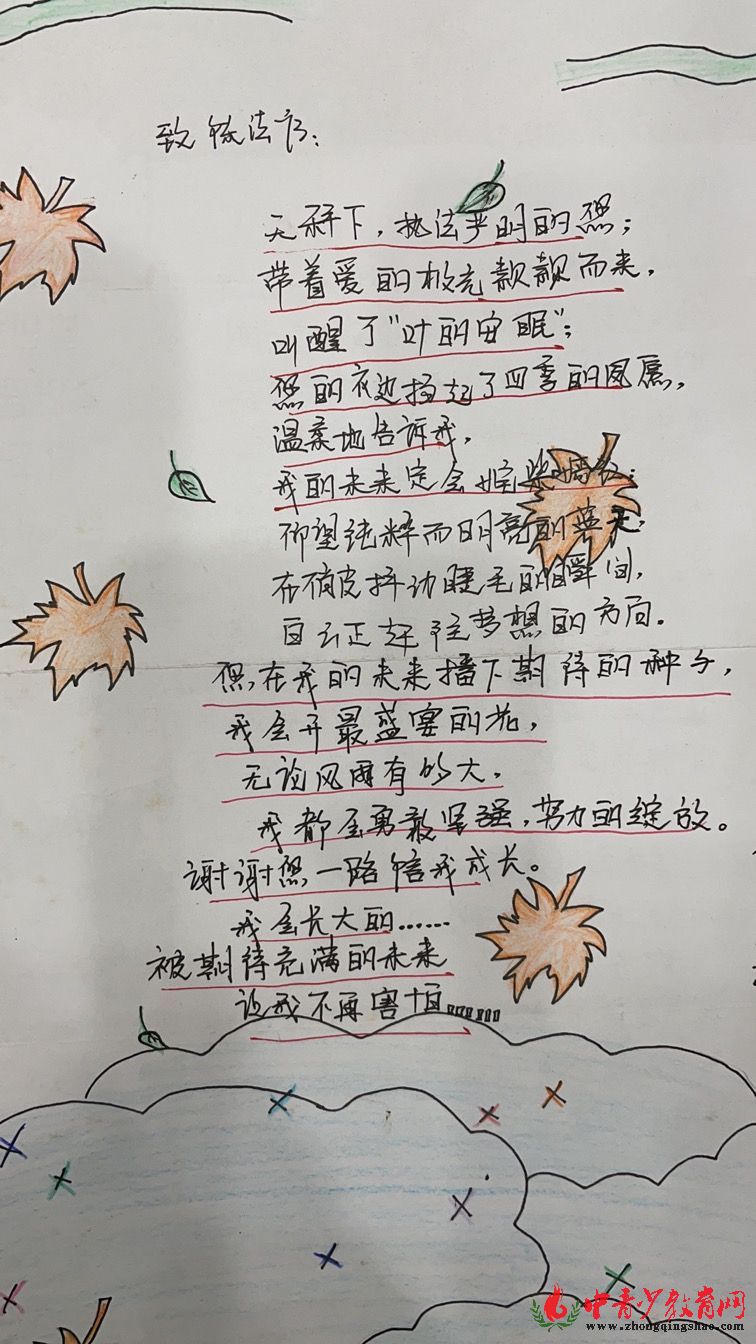 致 法官：
天秤下，执法严明的您；
带着爱的极光款款而来，
叫醒了“叶的安眠”；
您的衣边扬起了四季的风
温柔地告诉我，
我的未来定会姹紫嫣红；
仰望纯粹而明亮的蓝天，
在俏皮抖动睫毛的瞬间，
白云正赶往梦想的方向。
您，在我的未来播下期待的种子，
我会开最盛宴的花，
无论风雨有的大，
我都会勇敢坚强，努力的绽放。
谢谢您一路 我成长。
我会长大的……
被期待充满的未来
让我不再害怕……
中青少教育网
www.zhongqingshao.com